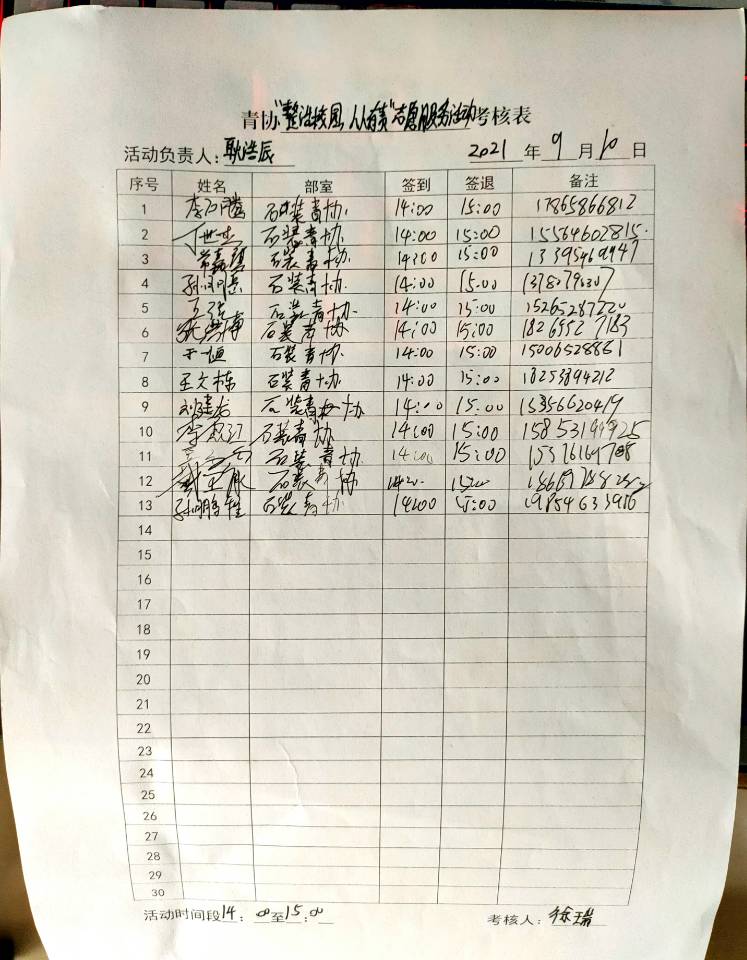 青协"整洁校园,人人有责"志愿服务活动考核表
活动负责人:耿浩辰 2021 年 9 月 10 日
序号 姓名 部室 签到 签退 备注
1 石装青协 14:00 15:00 17865866812
2 丁世杰 石装青协 14:00 15:00 15564602815
3 石装青协 14:00 15:00
4 石装青协 14:00 15:00
5 石装青协 14:00 15:00 15265287220
6 张洪博 石装青协 14:00 15:00
7 石装青协 14:00 15:00 15006528861
8 王文栋 石装青协 14:00 15:00 18253894212
9 刘建龙 石装青协 14:00 15:00 15356620419
10 石装青协 14:00 15:00
11 石装青协 14:00 15:00
12 石装青协
13 石装青协 14:00 15:00 19854633916
14
15
16
17
18
19
20
21
22
23
24
25
26
27
28
29
30
活动时间段14:00至15:00 考核人:徐瑞